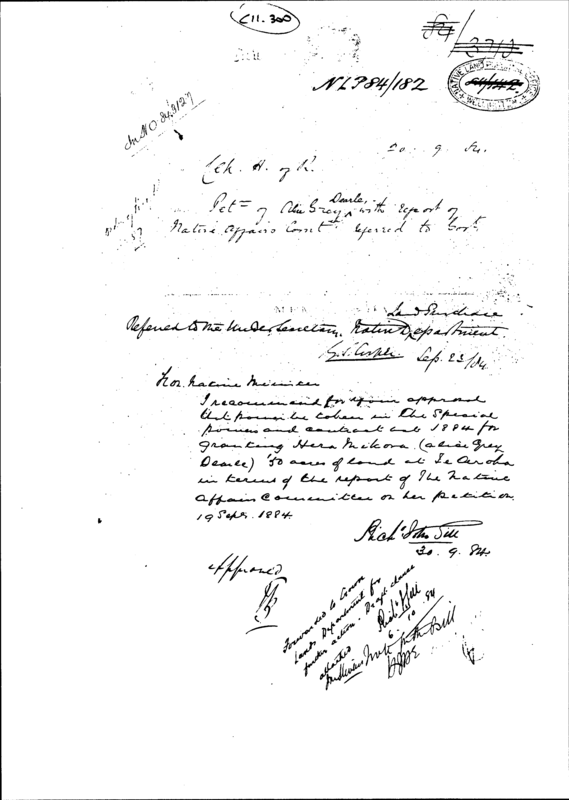 C11.300
84/3710
NLP84/182
NATIVE LAND PURCHASE OFFICE
WELLINGTON
20. 9. 84.
H. of R.
Petn of Alice Grey Dearle with report of
Native Affairs Comtee referred to Govt
Land Purchase
Referred to the Under Secretary, Native Department.
Sep. 23/84
Hon. Native Minister
I recommend for your approval
that power be taken in the Special
powers and contract act 1884 for
granting Hera Mikora (Alice Grey
Dearle) 50 acres of land at Te Aroha
in terms of the report of the Native
Affairs Committee on her petition
19 Sept. 1884.
Richd John Gill
30. 9. 84.
Approved
Forwarded to Crown
Lands Department for
further action. Draft clause
attached
Richd J Gill
6. 10. 84
Note for the Bill